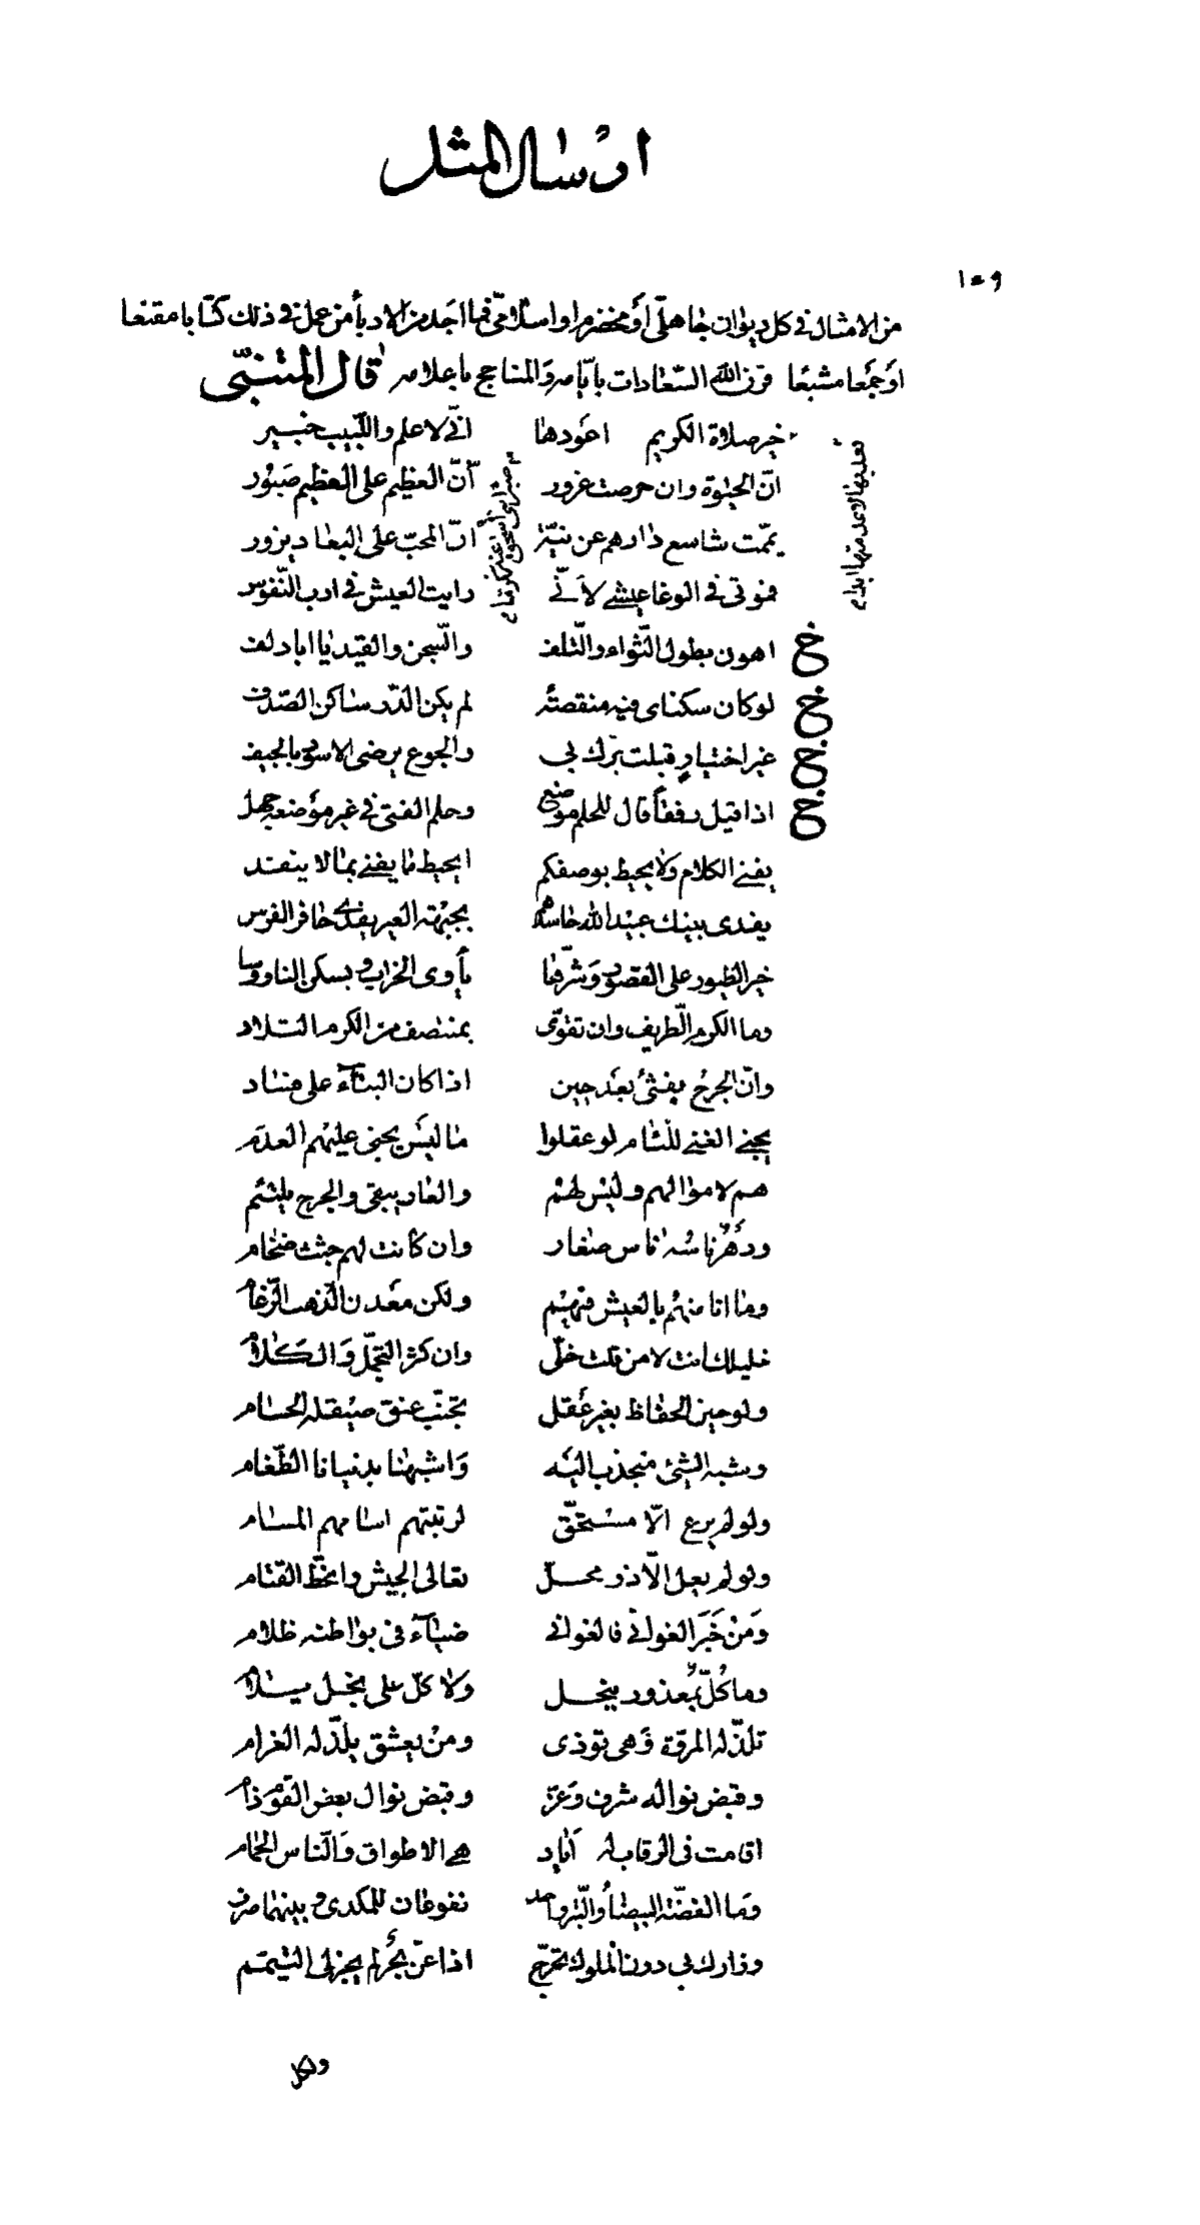 ارسال المثل
١٠٩
من الامثال في كل ديوان جاهلي أو مخضرم او اسلامي فما اجد من الادبأ من عمل في ذلك كتابا مقنعا
او جمعا مشبعا قرن الله السعادات بايامه والمناجح باعلامه قال المتنبى
خير صلاة الكريم اعودها اني لاعلم واللبيب خبير
ان الحيوة وان حرصت غرور أن العظيم على العظيم صبور
يممت شاسع دارهم عن نية ان المحب على البعاد يزور
فموتى في الوغا عيشى لانى رايت العيش في ارب النفوس
اهون بطول الثواء والتلف والسجن والقيد يا ابا دلف
لو كان سكناى فيه منقصة لم يكن الدر ساكن الصدف
غير اختيار قبلت برك لى والجوع يرضى الاسود بالجيف
اذا قيل رفقا قال للحلم موضع وحلم الفتى في غير موضعه جهل
يفنى الكلام ولا يحيط بوصفكم ايحيط ما يفنى بما لا ينفد
يفدى بنيك عبيد الله حاسدهم بجبهة العير يفدى حافر الفرس
خير الطيور على القصور وشرها يأوى الخراب ويسكن الناووسا
وما الكرم الطريف وان تقوى بمنتصف من الكرم التلاد
وان الجرح ينفثئ بعد حين اذا كان البنآء على فساد
يجنى الغنى للئام لو عقلوا ما ليس يجنى عليهم العدم
هم لاموالهم وليس لهم والعار يبقى والجرح يلتئم
ودهر ناسه ناس صغار وان كانت لهم جثث ضخام
وما انا منهم بالعيش فيهم ولكن معدن الذهب الرغام
خليلك انت لا من قلت خلى وان كثر التجمل والكلام
ولو حيز الحفاظ بغير عقل تجنب عنق صيقله الحسام
وشبه الشئ منجذب اليه واشبهنا بدنيانا الطغام
ولو لم يرع الا مستحق لرتبتهم اسامهم المسام
ولو لم يعل الا ذو محل تعالى الجيش وانحط القتام
ومن خبر الغوانى فالغوانى ضيآء في بواطنه ظلام
وما كل بمعذور ببخل ولا كل على بخل يلام
تلذ له المروة وهى توذى ومن يعشق يلذ له الغرام
وقبض نواله شرف وعز وقبض نوال بعض القوم ذام
اقامت في الرقاب له اياد هي الاطواق والناس الحمام
وما الفضة البيضأ والتبر واحد نفوعان للمكدى وبينهما صرف
وزارك بى دون الملوك تحرج اذا عن بحر لم يجز لى التيمم
وكل